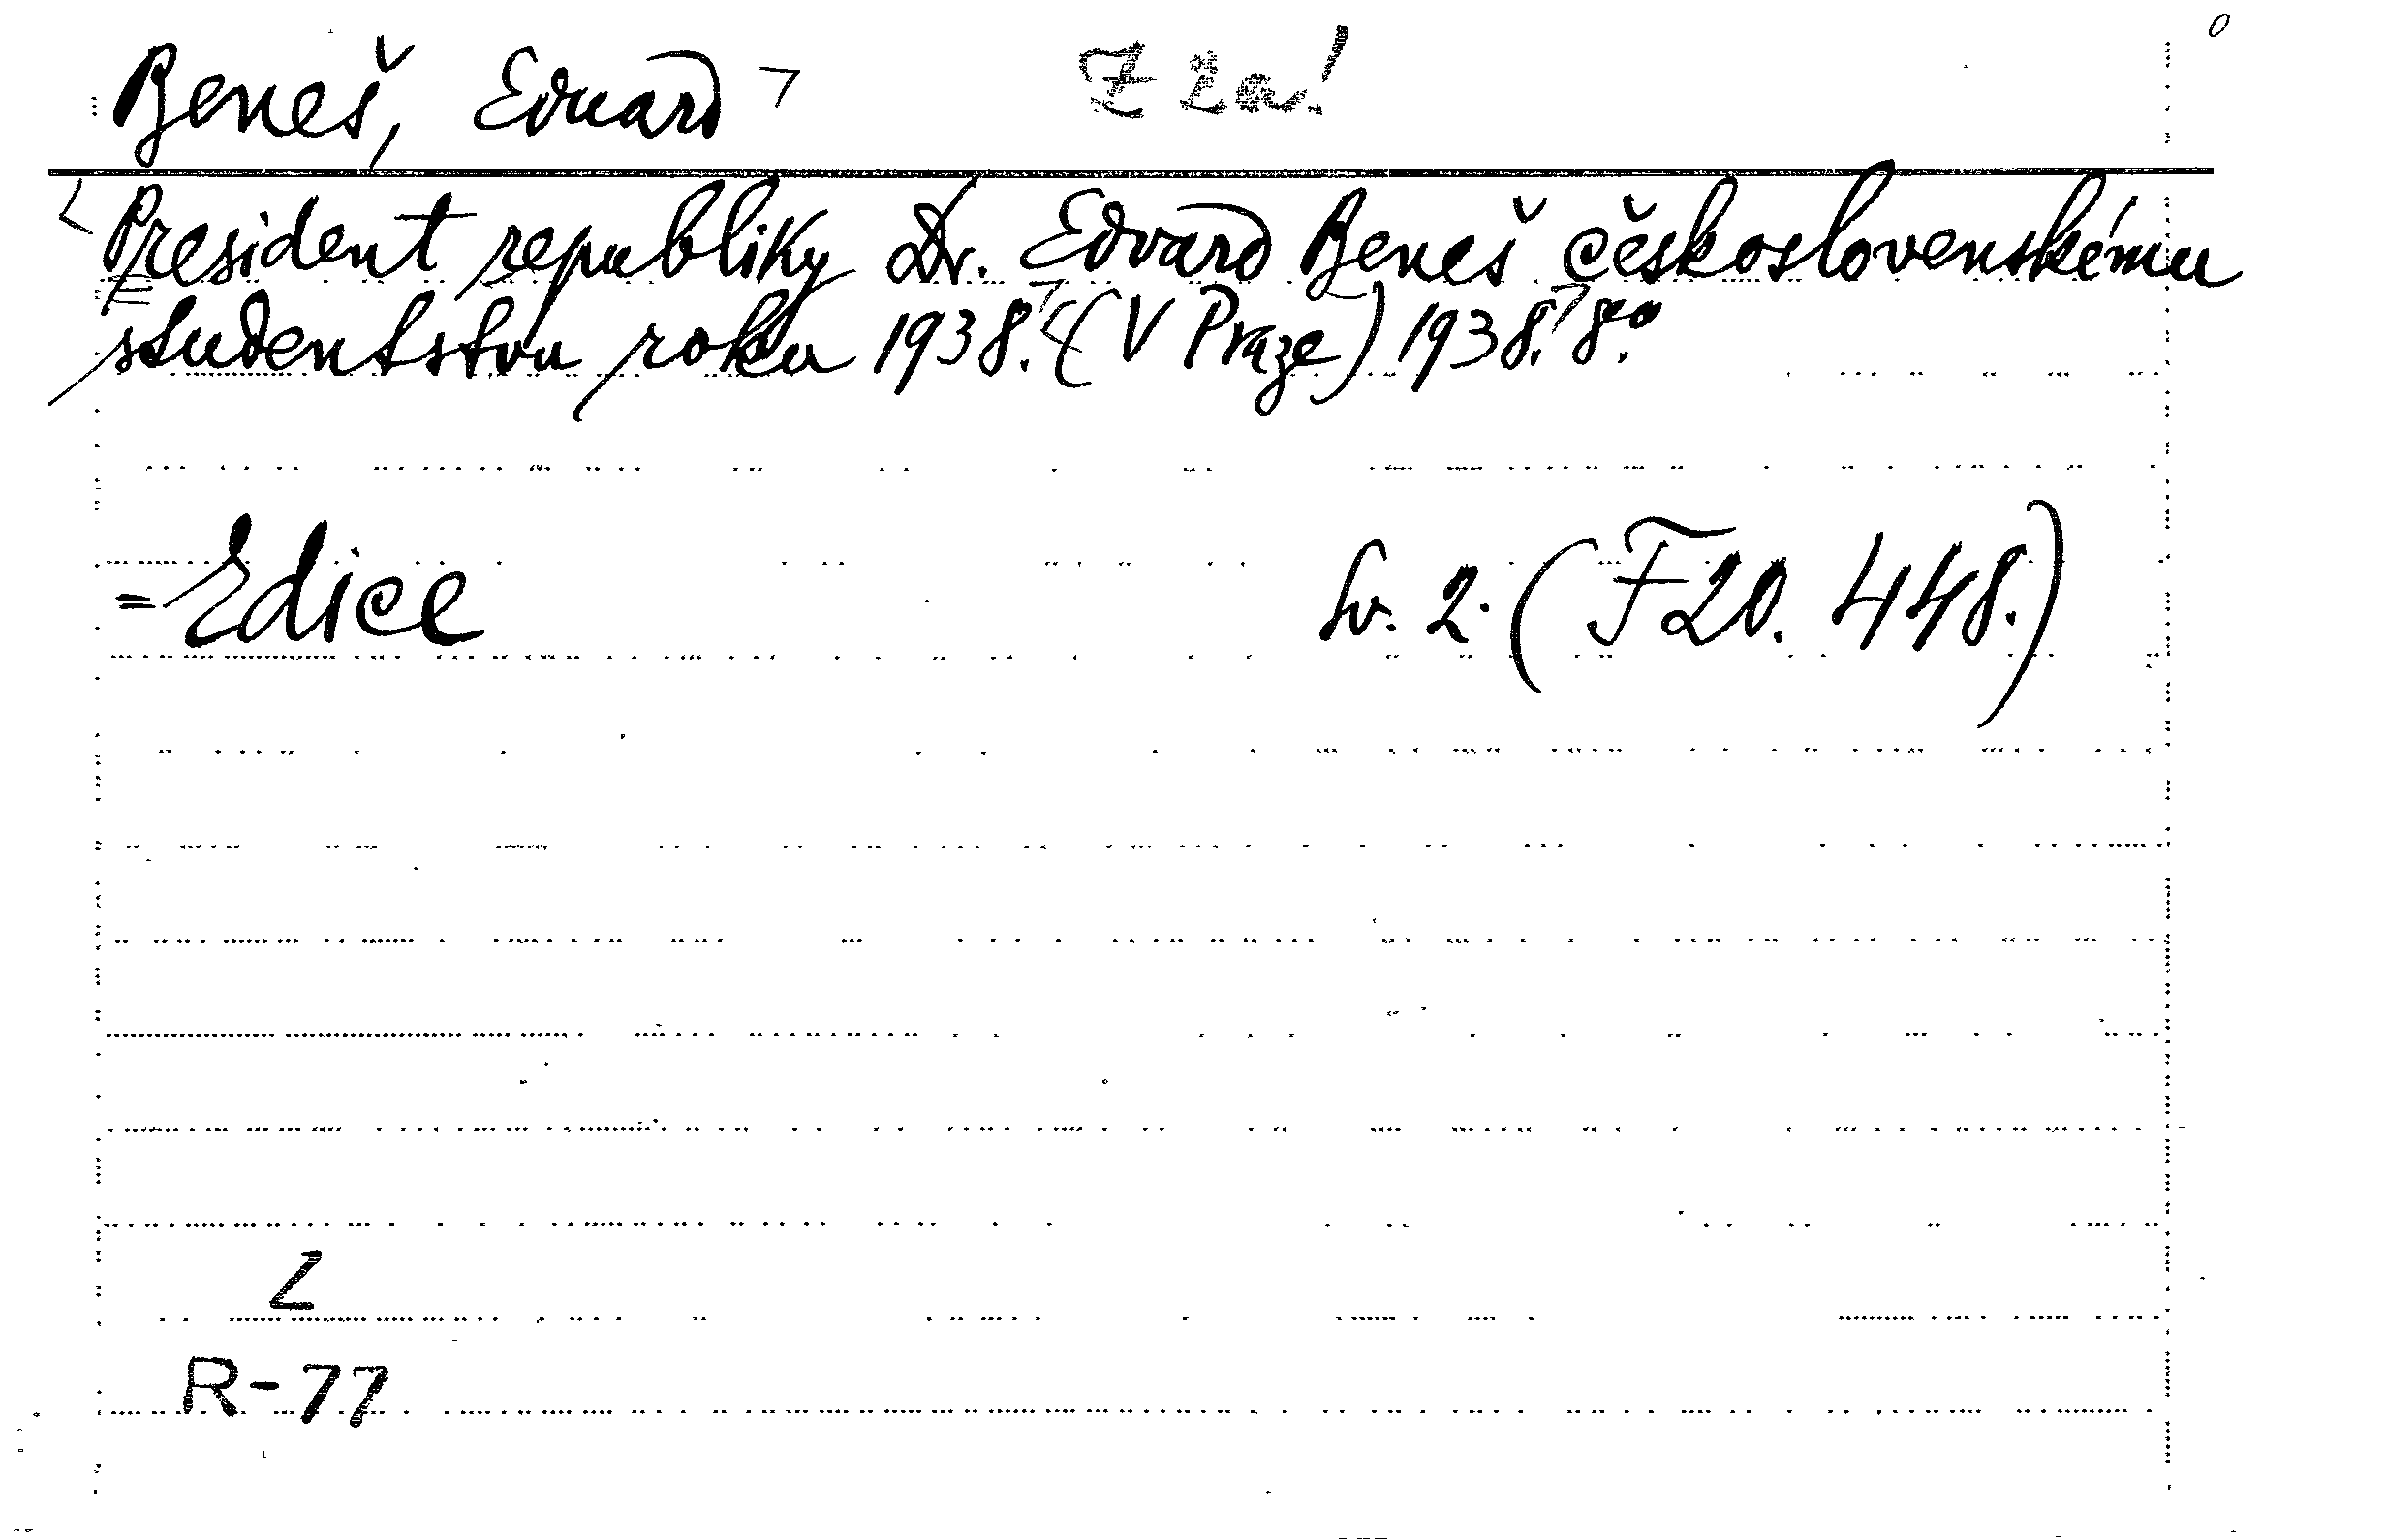 Beneš, Eduard Z za!
President republiky Dr. Edvard Beneš československému
studentstvu roku 1938. (V Praze) 1938. 8.º
= Edice Sv. 2. (F 20. 448.)
Z
R-77